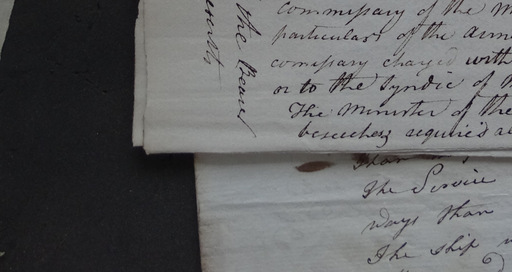 commissary of the M
particulars of the Arm
comissary charged with
or to the Syndic of
The Minister of the
beseeches required
the Bearer
The Service
ways than
The ship